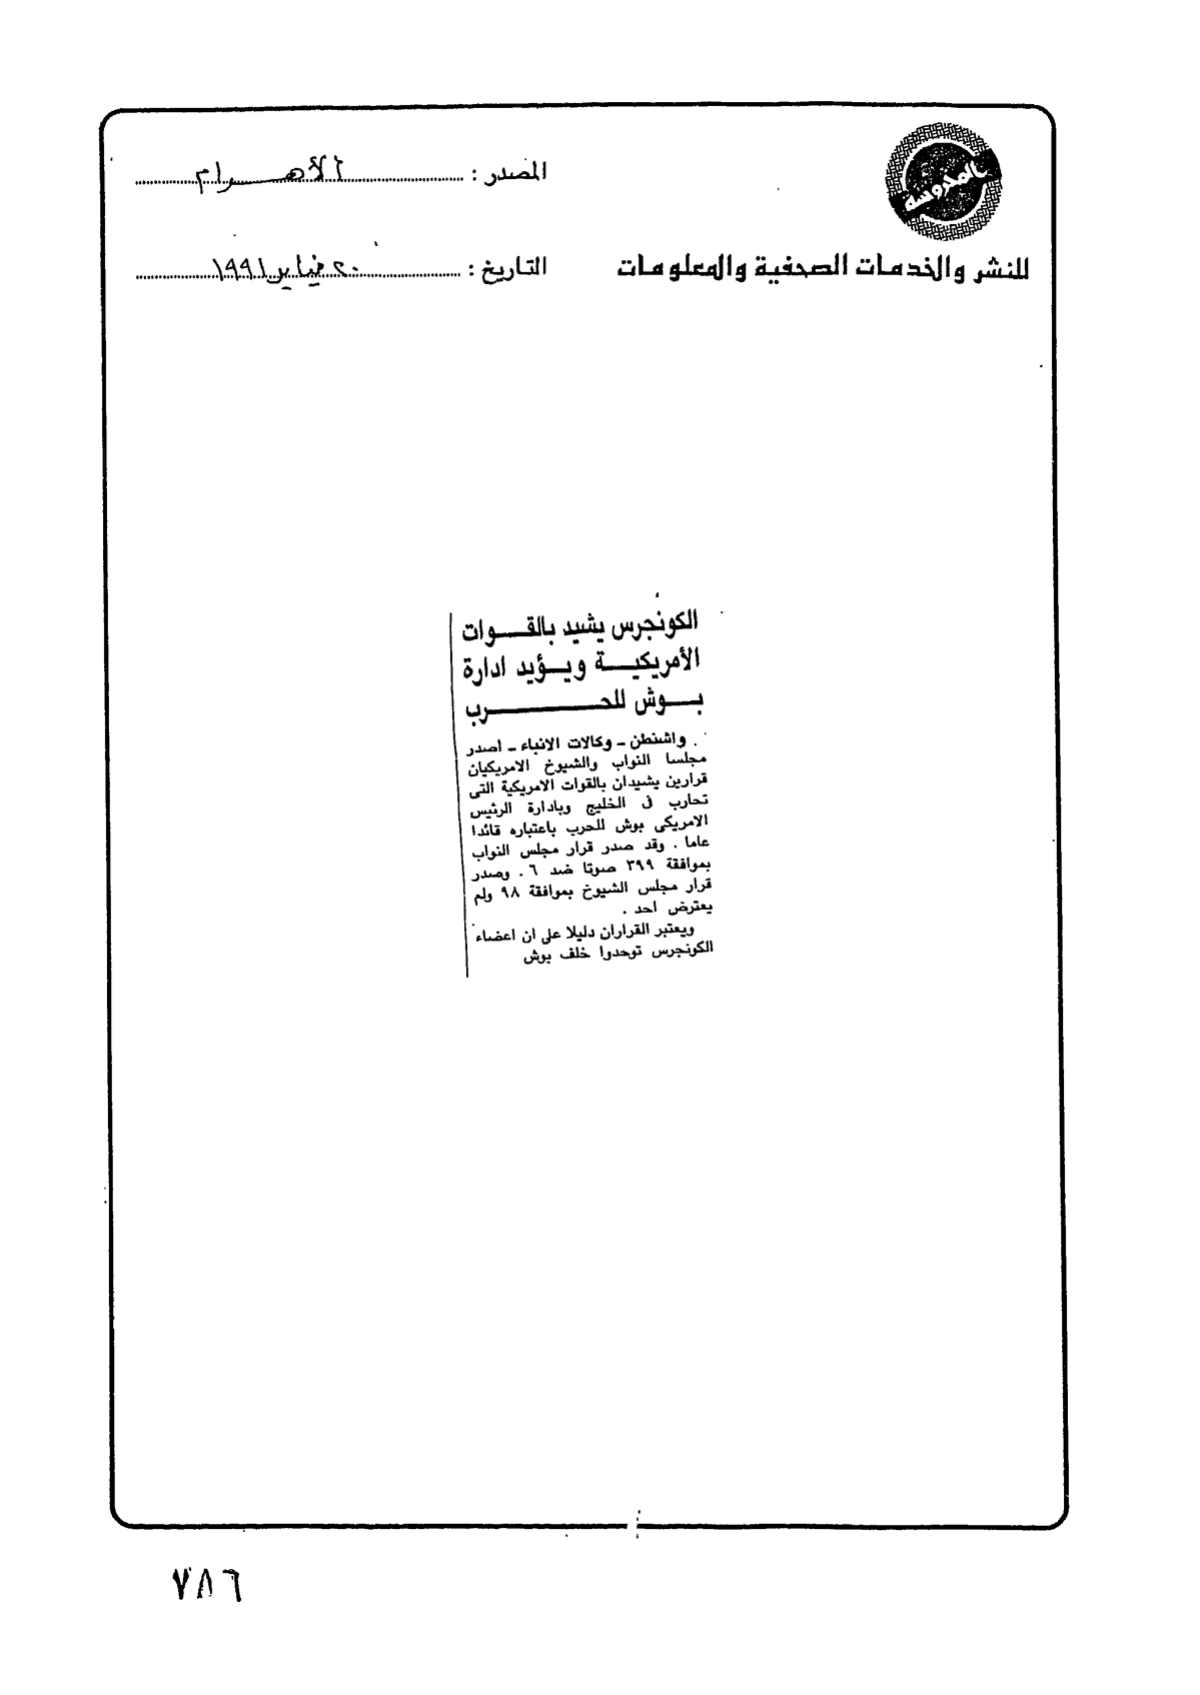 المحروسة
للنشر والخدمات الصحفية والمعلومات
المصدر : الأهرام
التاريخ : ٢٠ فبراير ١٩٩١
الكونجرس يشيد بالقـــوات
الأمريكيـــة ويـــؤيد ادارة
بـــوش للحـــــــرب
واشنطن ـ وكالات الانباء ـ اصدر
مجلسا النواب والشيوخ الامريكيان
قرارين يشيدان بالقوات الامريكية التى
تحارب فى الخليج وبادارة الرئيس
الامريكى بوش للحرب باعتباره قائدا
عاما . وقد صدر قرار مجلس النواب
بموافقة ٣٩٩ صوتا ضد ٦ . وصدر
قرار مجلس الشيوخ بموافقة ٩٨ ولم
يعترض احد .
ويعتبر القراران دليلا على ان اعضاء
الكونجرس توحدوا خلف بوش
٧٨٦